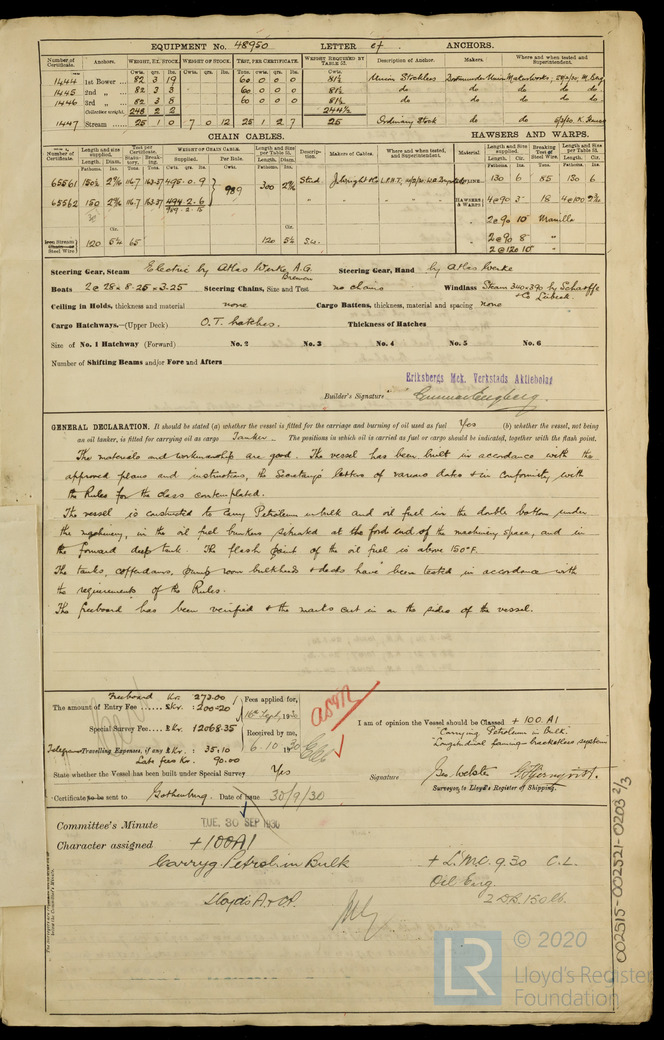 EQUIPMENT No. 48950 LETTER ef ANCHORS.
Number of Certificate. Anchors. WEIGHT, EX. STOCK. WEIGHT OF STOCK. TEST, PER CERTIFICATE. WEIGHT REQUIRED BY TABLE 53. Description of Anchor. Makers. Where and when tested and Superintendent.
Cwts. qrs. lbs. Cwts. qrs. lbs. Tons. cwt. qrs. lbs. Cwts.
1444 1st Bower ... 82 3 19 60 0 0 0 81½ Union Stockless
1445 2nd " ... 82 3 3 60 0 0 0 81½ do do do
1446 3rd " ... 82 3 8 60 0 0 0 81½ do do do
Collective weight 248 2 2 244½
1447 Stream ... 25 1 0 7 0 12 25 1 2 7 25 Ordinary Stock do do
CHAIN CABLES. HAWSERS AND WARPS.
Number of Certificate. Length and size supplied. Test per Certificate. WEIGHT OF CHAIN CABLE. Length and size per Table 53. Description. Makers of Cables. Where and when tested, and Superintendent. Material. Length and Size supplied. Breaking Test of Steel Wire. Length and Size per Table 53.
Length. Diam. Statutory. Breaking. Supplied. Per Rule. Length. Diam. Length. Cir. Length. Cir.
65561 150½ 2 9/16 116.7 163.37 495-0-9 989 300 2 9/16 Stud J. Wright & Co L.P.H.T. TOWLINE 130 6 85 130 6
65562 150 2 9/16 116.7 163.37 494-2-6 " " HAWSERS & WARPS 4@90 3" 18 4@100 2¾
989-2-15
2@90 10 Manilla
2@90 8 "
2@120 10 "
Iron Stream Chain or Steel Wire 120 5¼ 65 120 5¼ S.W.
Steering Gear, Steam Electric by Atlas Werke A.G. Bremen Steering Gear, Hand by Atlas Werke
Boats 2 @ 28 x 8.25 x 3.25 Steering Chains, Size and Test no chains Windlass Steam 340x390 by Scharffe & Co Lübeck.
Ceiling in Holds, thickness and material none Cargo Battens, thickness, material and spacing none
Cargo Hatchways.—(Upper Deck) O.T. hatches. Thickness of Hatches
Size of No. 1 Hatchway (Forward) No. 2 No. 3 No. 4 No. 5 No. 6
Number of Shifting Beams and/or Fore and Afters
Eriksbergs Mek. Verkstads Aktiebolag
Builder's Signature Gunnar Engberg.
GENERAL DECLARATION. It should be stated (a) whether the vessel is fitted for the carriage and burning of oil used as fuel Yes (b) whether the vessel, not being
an oil tanker, is fitted for carrying oil as cargo Tanker. The positions in which oil is carried as fuel or cargo should be indicated, together with the flash point.
The materials and workmanship are good. The vessel has been built in accordance with the
approved plans and instructions, the Secretary's letters of various dates & in conformity with
the Rules for the class contemplated.
The vessel is constructed to carry Petroleum in bulk and oil fuel in the double bottom under
the machinery, in the oil fuel bunkers situated at the ford end of the machinery space, and in
the forward deep tank. The flash point of the oil fuel is above 150°F.
The tanks, cofferdams, pump room bulkheads & decks have been tested in accordance with
the requirements of the Rules.
The freeboard has been verified & the marks cut in on the sides of the vessel.
Freeboard Kr. 273.00
The amount of Entry Fee ...... £Kr. : 200.20
Special Survey Fee... £Kr. : 12068.35
Telegrams Travelling Expenses, if any £Kr. : 35.10
Late fees Kr. 90.00
Fees applied for,
16th Sept. 1930
Received by me,
6.10.1930
I am of opinion the Vessel should be Classed +100.A1
"Carrying Petroleum in Bulk"
"Longitudinal framing – bracketless system"
State whether the Vessel has been built under Special Survey Yes
Signature Geo. Webster
Surveyor to Lloyd's Register of Shipping.
Certificate to be sent to Gothenburg. Date of issue 30/9/30
Committee's Minute TUE. 30 SEP 1930
Character assigned +100A1
Carryg Petrol. in Bulk
+ L.M.C. 9.30 C.L.
Oil Eng.
2 D.B. 150 lb.
Lloyd's A & C.P.
002515-002521-0203 2/3
LR © 2020
Lloyd's Register
Foundation